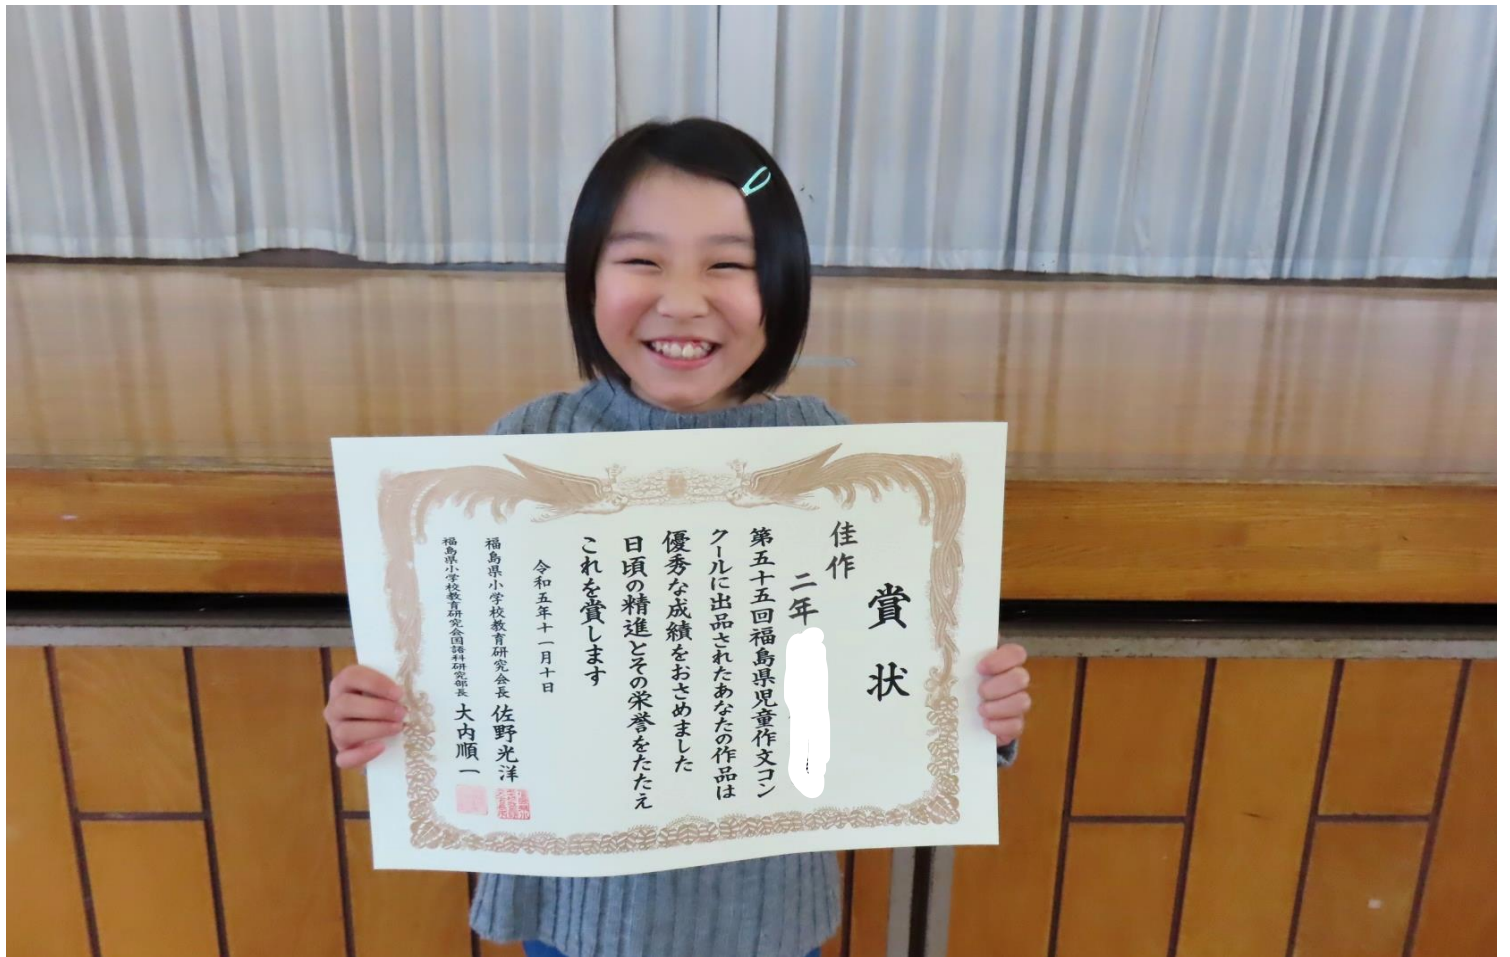 賞状
佳作
二年
第五十五回福島県児童作文コン
クールに出品されたあなたの作品は
優秀な成績をおさめました
日頃の精進とその栄誉をたたえ
これを賞します
令和五年十一月十日
福島県小学校教育研究会長 佐野光洋
福島県小学校教育研究会国語科研究部長 大内順一